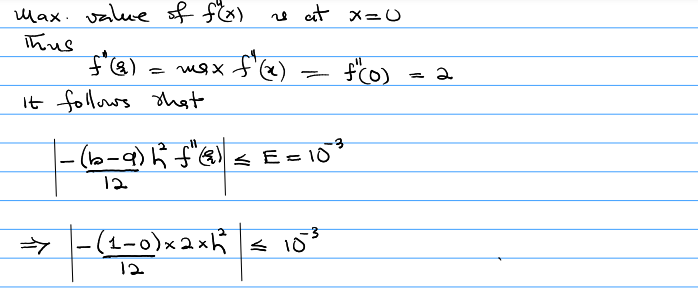 Max. value of f"(x) is at x=0
Thus
f"(ξ) = max f"(x) = f"(0) = 2
It follows that
|-(b-a)h² f"(ξ)/12| ≤ E = 10⁻³
⇒ |-(1-0)×2×h²/12| ≤ 10⁻³